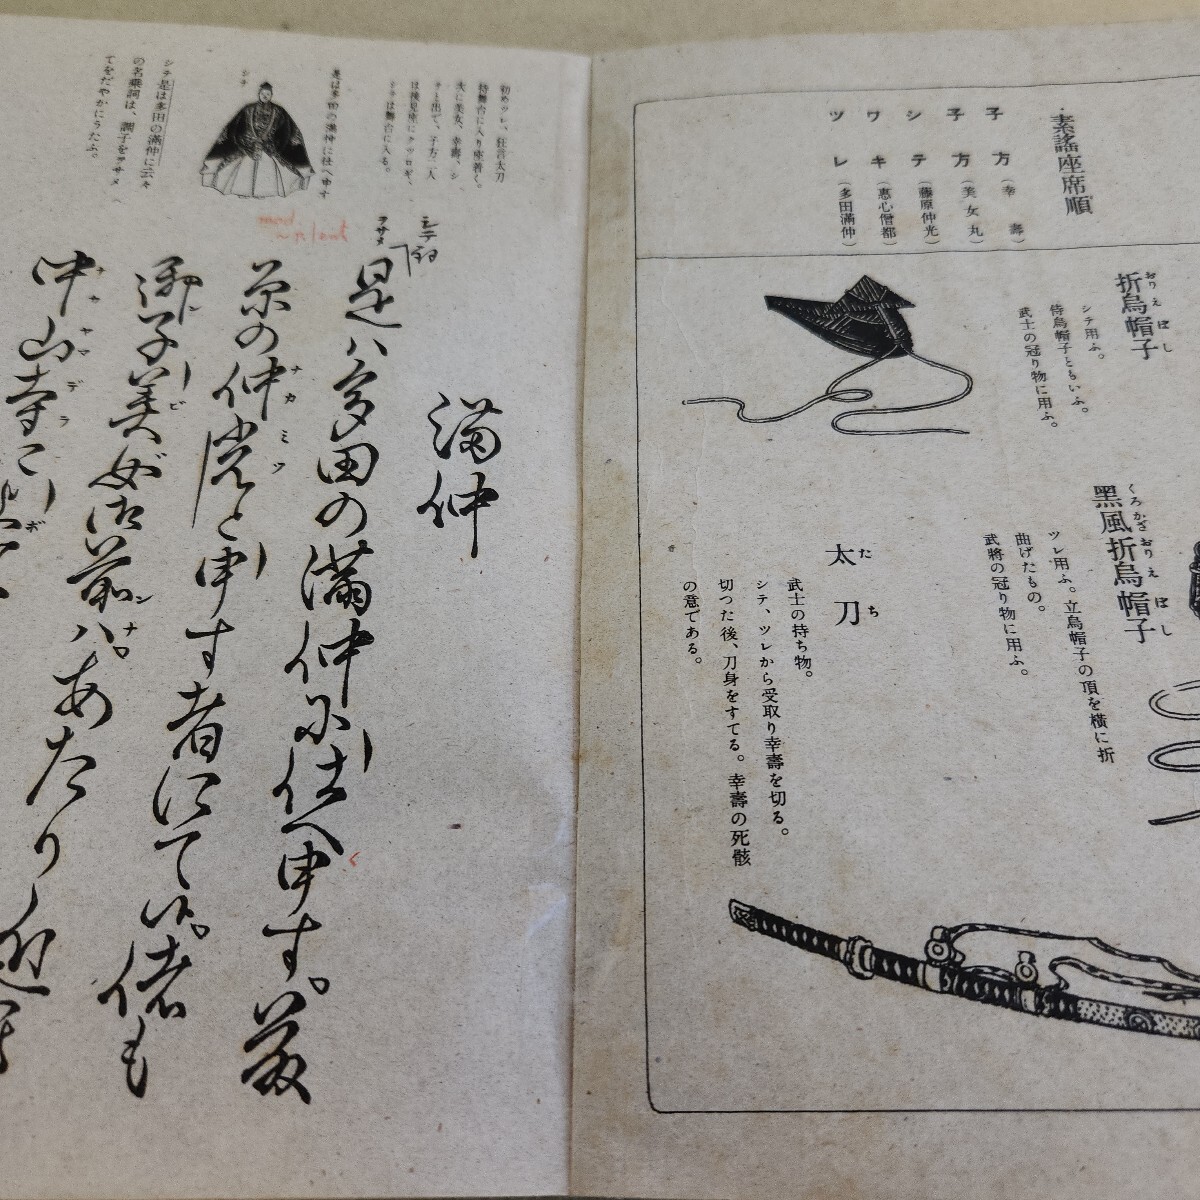 素謠座席順
子方(幸壽)
子方(美女丸)
シテ(藤原仲光)
ワキ(惠心僧都)
ツレ(多田滿仲)
折烏帽子
おりえぼし
シテ用ふ。
侍烏帽子ともいふ。
武士の冠り物に用ふ。
黑風折烏帽子
くろかざおりえぼし
ツレ用ふ。立烏帽子の頂を橫に折
曲げたもの。
武將の冠り物に用ふ。
太刀
たち
武士の持ち物。
シテ、ツレから受取り幸壽を切る。
切つた後、刀身をすてる。幸壽の死骸
の意である。
初めツレ、狂言太刀
持舞台に入り座着く。
次に美女、幸壽、シ
テと出て、子方二人
は後見座にクツロギ、
シテは舞台に入る。
是は多田の滿仲に仕へ申す
シテ
シテ是は多田の滿仲に云々
の名乗詞は、調子をヲサメ
てをだやかにうたふ。
滿仲
シテ詞
ヲサメ
是ハ多田の滿仲に仕へ申す。藤
く
原の仲光と申す者にて候。偖も
ナカミツ
御子美女御前ハ。あたり近き
ビ
中山寺に
ナヤマデラ